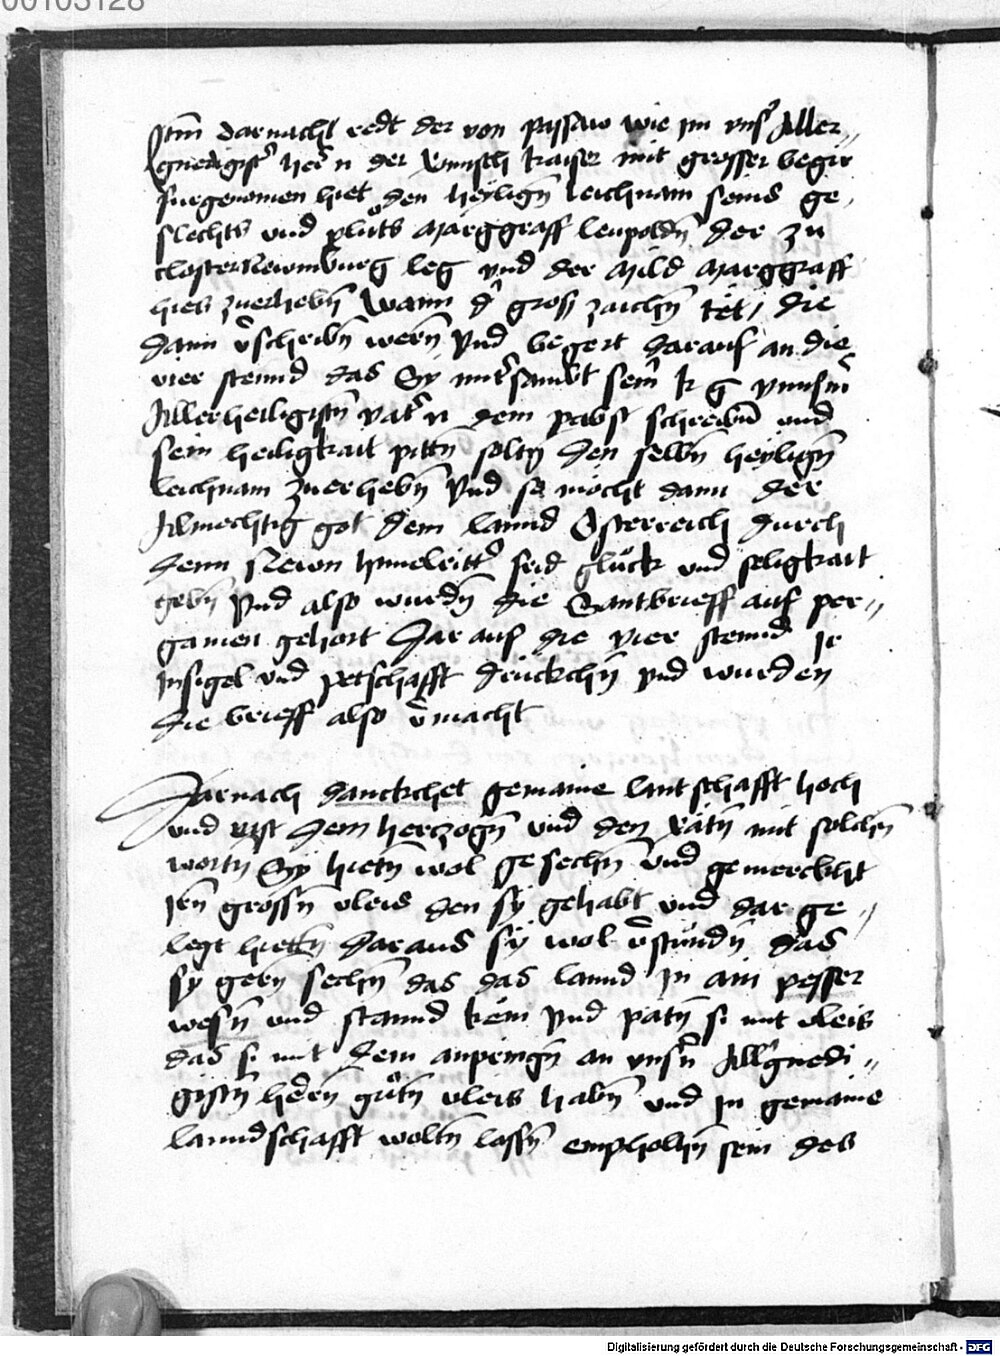 00103128
Item darnacht redt der von passaw wie im unser Aller-
gnedigister her n der Romisch kaiser mit grosser begir
furgenomen hiet den heyligen leichnam seins ge-
slechts und pluts Marggraff leupolden der zu
closterNeumburg leg und der Mild Marggraff
hies zuerheben wann der gross zaichen tet, die
dann verschriben weren Und begert darauf an die
vier stennd das Sy mitsambt sein k g unnserm
Allerheiligisten vater n dem pabst schreiben und
sein heiligkait pitten solten den selben heyligen
leichnam zuerheben Und so mocht dann der
Almechtig got dem lannd Osterreich durch
denn Newn himelritter frid gluck und seligkait
geben Und also wurden die Santbrieff auf per-
gamen gehort Darauf die vier stennd Ir
Insigel und petschafft druckchen und wurden
die brieff also vermacht
Darnach danckchet gemaine lantschafft hoch
und vast dem herczogen und den Räten mit solchen
worten Sy hieten wol gesechen und gemerckht
Iren grossen vleis den sy gehabt und dar ge-
legt hietten daraus sy wol verstunden das
sy gern sechen das das lannd In ain pesser
wesen und stannd kem Und paten si mit vleis
das si mit dem anpringen an unsern Allergnedi-
gisten herren guten vleis haben und In gemaine
lanndschafft wolten lassen empholhen sein des
Digitalisierung gefördert durch die Deutsche Forschungsgemeinschaft - DFG